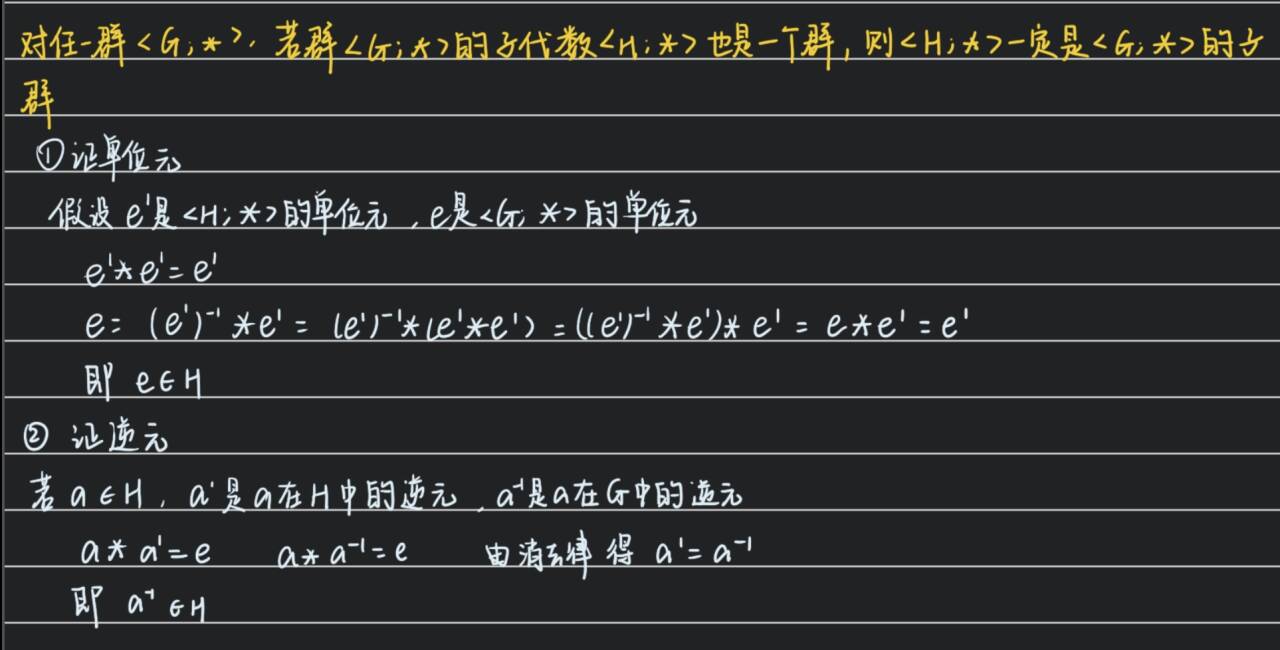 对任一群<G;*>,若群<G;*>的子代数<H;*>也是一个群,则<H;*>一定是<G;*>的子
群
①证单位元
假设 e'是<H;*>的单位元,e是<G;*>的单位元
e'*e'=e'
e= (e')⁻¹*e' = (e')⁻¹*(e'*e') =((e')⁻¹*e')*e' = e*e' = e'
即 e∈H
② 证逆元
若 a∈H, a'是a在H中的逆元,a⁻¹是a在G中的逆元
a*a'=e a*a⁻¹=e 由消去律 得 a'=a⁻¹
即 a⁻¹∈H